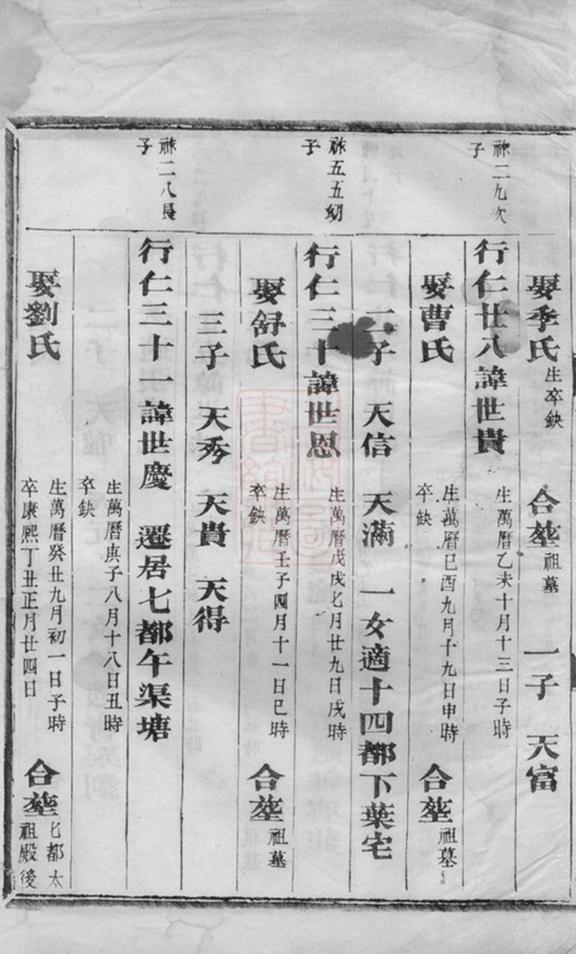 娶季氏 生卒缺 合塟祖墓 一子 天富
祢二九次子
行仁廿八諱世貴 生萬曆乙未十月十三日子時
娶曹氏 生萬曆己酉九月十九日申時 卒缺 合塟祖墓
子 天信 天滿 一女適十四都下葉宅
祢五五幼子
行仁三十諱世恩 生萬曆戊戌七月廿九日戌時
娶舒氏 生萬曆壬子四月十一日巳時 卒缺 合塟祖墓
三子 天秀 天貴 天得
祢二八長子
行仁三十一諱世慶 遷居七都午渠塘
生萬曆庚子八月十八日丑時 卒缺
娶劉氏 生萬曆癸丑九月初一日子時 卒康熙丁丑正月廿四日 合塟七都太祖殿後